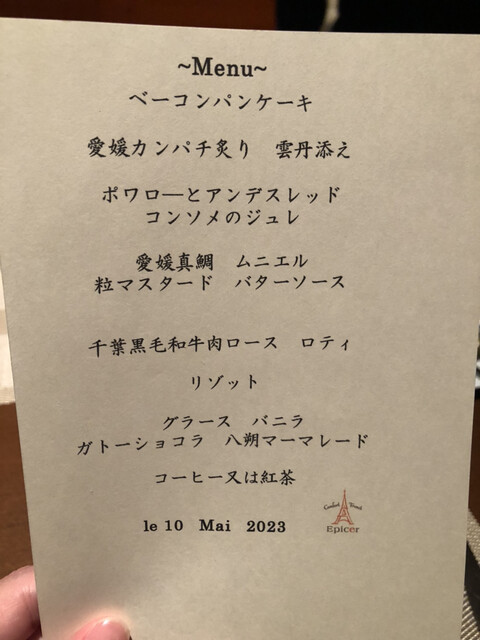 ~Menu~
ベーコンパンケーキ
愛媛カンパチ炙り 雲丹添え
ポワロ―とアンデスレッド
コンソメのジュレ
愛媛真鯛 ムニエル
粒マスタード バターソース
千葉黒毛和牛肉ロース ロティ
リゾット
グラース バニラ
ガトーショコラ 八朔マーマレード
コーヒー又は紅茶
le 10 Mai 2023
Epicer